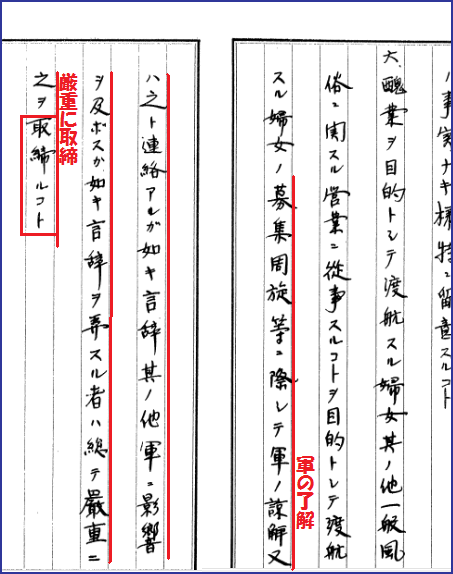 ノ事実ナキ様特ニ留意スルコト
六、醜業ヲ目的トシテ渡航スル婦女其ノ他一般風
俗ニ関スル営業ニ従事スルコトヲ目的トシテ渡航
軍の了解
スル婦女ノ募集周旋等ニ際シテ軍ノ諒解又
ハ之ト連絡アルガ如キ言辞其ノ他軍ニ影響
ヲ及ボスガ如キ言辞ヲ弄スル者ハ総テ厳重ニ
厳重に取締
之ヲ取締ルコト